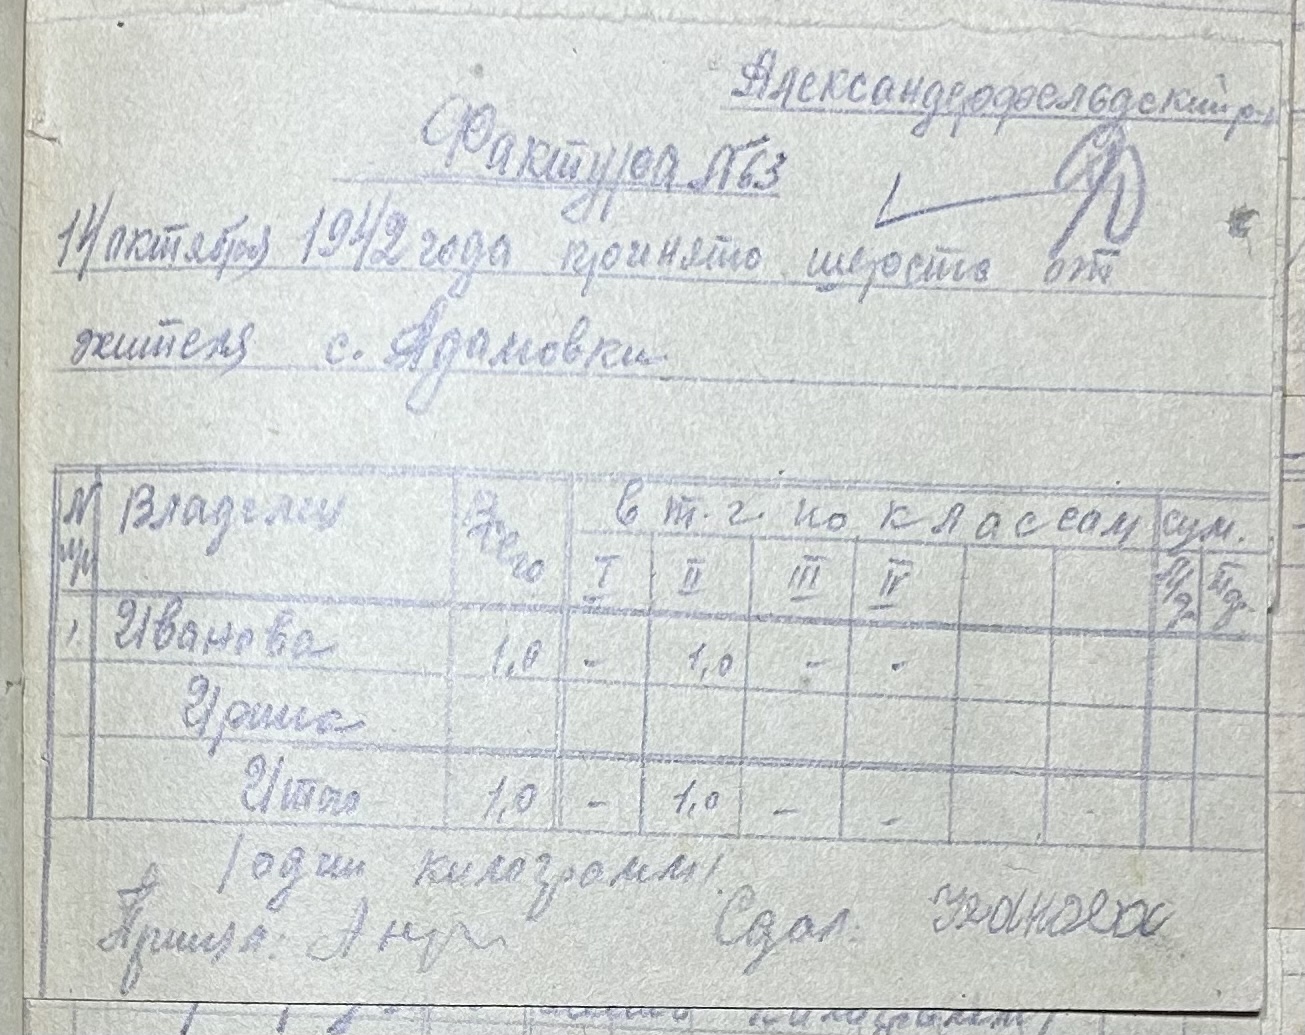 Александерофельдский р-н
Фактура №63
14 октября 1942 года принято шерости от
жителя с. Адамовки
№ Владелец Всего в т. г. по классам сум.
I II III IV
1. Иванова 1,0 - 1,0 - -
Ирина
Итого 1,0 - 1,0 - -
/один килограмм/.
Принял: Сдал: Иванова